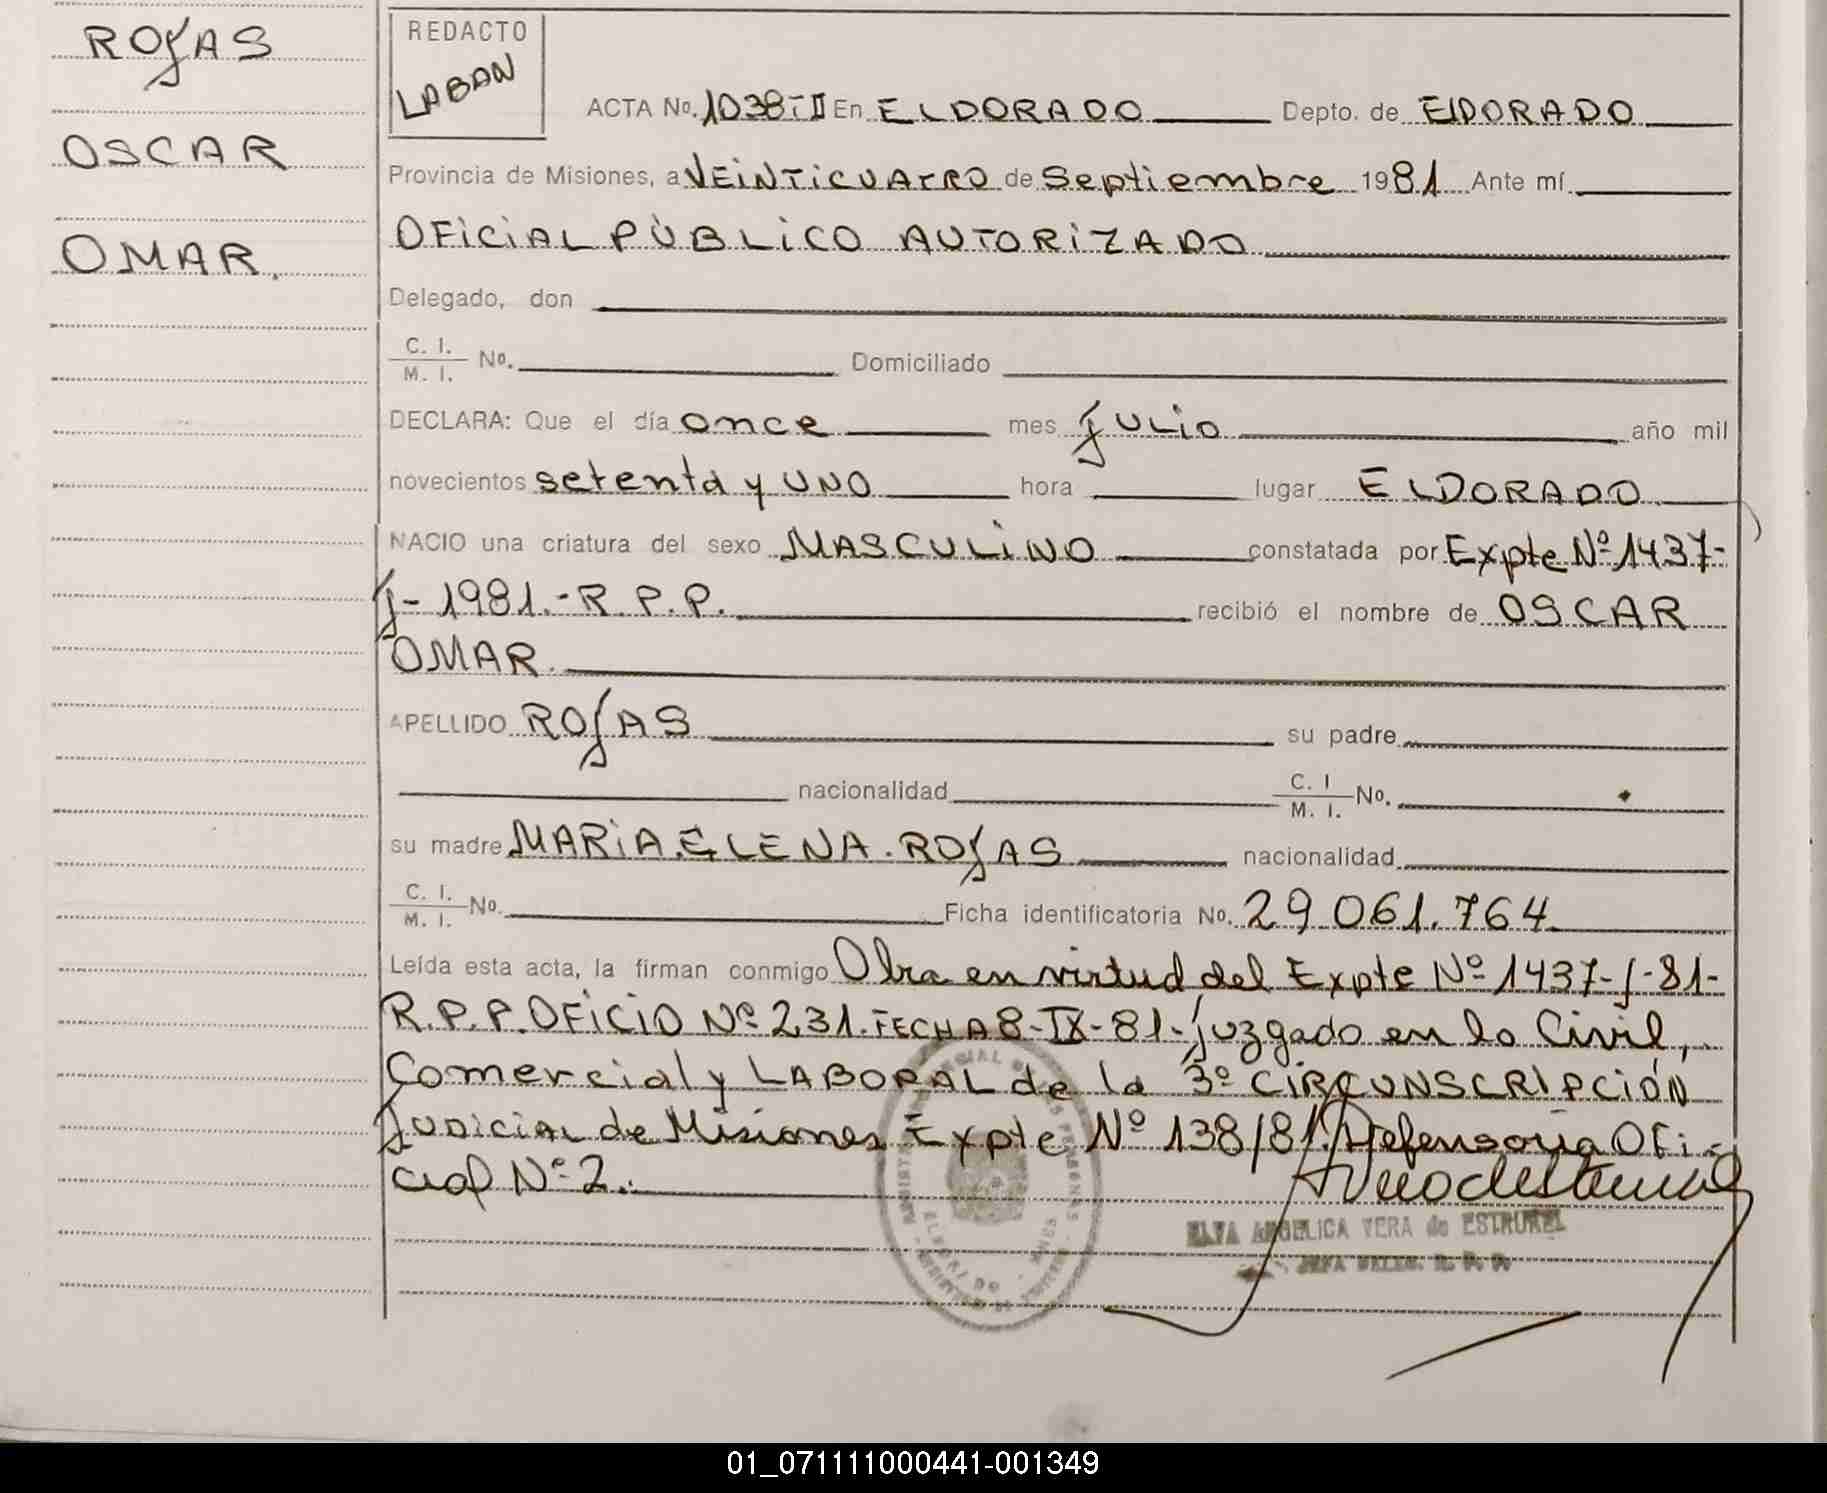 ROJAS
OSCAR
OMAR.
REDACTO
LABAN
ACTA No. 1038-T II En ELDORADO Depto. de ElDORADO
Provincia de Misiones, a VEINTICUATRO de Septiembre 1981 Ante mí
OFICIAL PÚBLICO AUTORIZADO
Delegado, don
C. I.
M. I. No. Domiciliado
DECLARA: Que el día once mes JULIO año mil
novecientos setenta y UNO hora lugar ELDORADO
NACIO una criatura del sexo MASCULINO constatada por Expte Nº 1437-
J-1981.-R.P.P. recibió el nombre de OSCAR
OMAR.
APELLIDO ROJAS su padre
nacionalidad C. I M. I. No.
su madre MARIA ELENA ROJAS nacionalidad
C. I.
M. I. No. Ficha identificatoria No. 29.061.764
Leída esta acta, la firman conmigo Obra en virtud del Expte Nº 1437-J-81-
R.P.P. OFICIO Nº 231. FECHA 8-IX-81- Juzgado en lo Civil,
Comercial y LABORAL de la 3º CIRCUNSCRIPCIÓN
JUDICIAL de Misiones Expte Nº 138/81. Defensoria OFi-
cial Nº 2.
ELVA ANGELICA VERA de ESTRUBEL
JEFA DELEG. R. P. P.
01_071111000441-001349